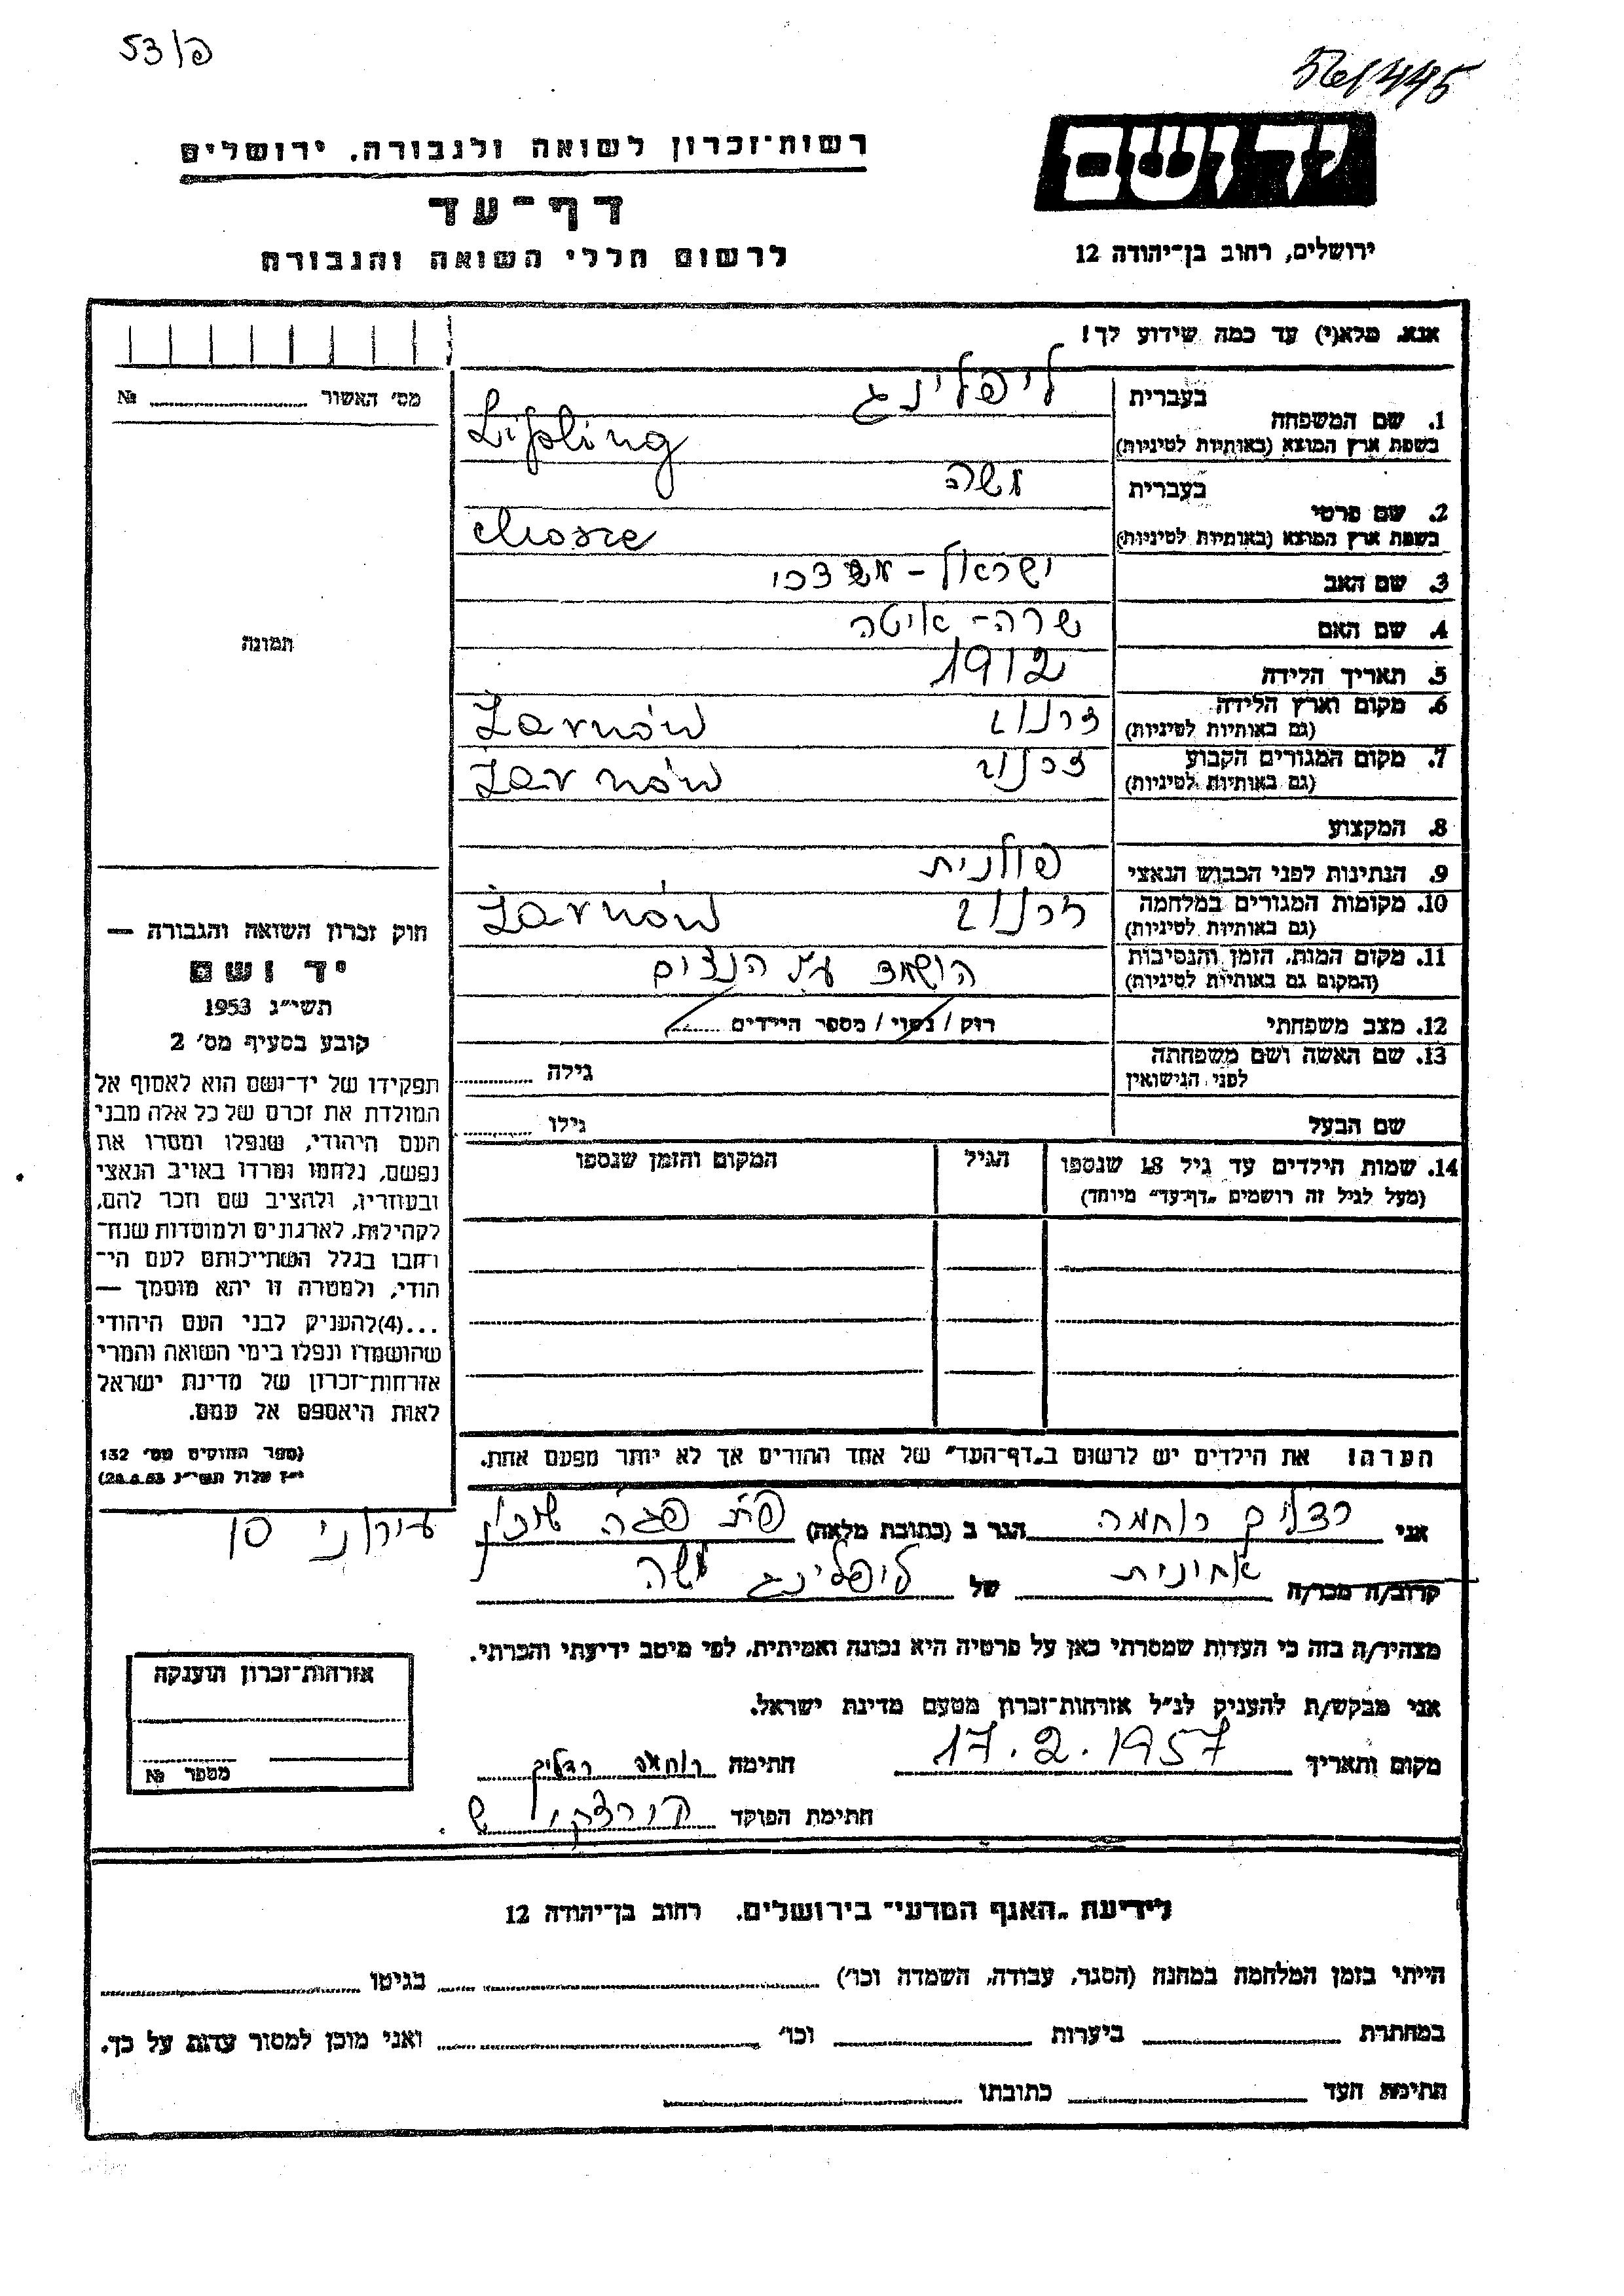 53/פ
יד ושם
רשות־זכרון לשואה ולגבורה. ירושלים
דף־עד
לרשום חללי השואה והגבורה
ירושלים, רחוב בן־יהודה 12
אנא. מלא(י) עד כמה שידוע לך!
מס' האשור № 
1. שם המשפחה בעברית ליפלינג
בשפת ארץ המוצא (באותיות לטיניות) Lipling
2. שם פרטי בעברית משה
בשפת ארץ המוצא (באותיות לטיניות) Mosze
3. שם האב ישראל - מרדכי
4. שם האם שרה - איטה
5. תאריך הלידה 1912
6. מקום וארץ הלידה (גם באותיות לטיניות) זרנוב Żarnów
7. מקום המגורים הקבוע (גם באותיות לטיניות) זרנוב Żarnów
8. המקצוע
9. הנתינות לפני הכבוש הנאצי פולנית
10. מקומות המגורים במלחמה (גם באותיות לטיניות) זרנוב Żarnów
11. מקום המות, הזמן והנסיבות (המקום גם באותיות לטיניות) הושמד ע"י הנצים
12. מצב משפחתי רווק / נשוי / מספר הילדים
13. שם האשה ושם משפחתה לפני הנישואין גילה
שם הבעל גילו
14. שמות הילדים עד גיל 18 שנספו הגיל המקום והזמן שנספו
(מעל לגיל זה רושמים „דף־עד" מיוחד)
הערה! את הילדים יש לרשום ב„דף־העד" של אחד ההורים אך לא יותר מפעם אחת.
תמונה
חוק זכרון השואה והגבורה —
יד ושם
תשי"ג 1953
קובע בסעיף מס' 2
תפקידו של יד־ושם הוא לאסוף אל
המולדת את זכרם של כל אלה מבני
העם היהודי, שנפלו ומסרו את
נפשם, נלחמו ומרדו באויב הנאצי
ובעוזריו, ולהציב שם וזכר להם,
לקהילות, לארגונים ולמוסדות שנח־
רחבו בגלל השתייכותם לעם הי־
הודי, ולמטרה זו יהא מוסמך —
...(4)להעניק לבני העם היהודי
שהושמדו ונפלו בימי השואה והמרי
אזרחות־זכרון של מדינת ישראל
לאות היאספם אל עמם.
(ספר החוקים מס' 132
י"ז אלול תשי"ג 28.8.53)
אני רצלים רוחמה הגר ב (כתובת מלאה) פת פגה שיכון עירוני 10
קרוב/ה מכר/ה אחינית של ליפלינג משה
מצהיר/ה בזה כי העדות שמסרתי כאן על פרטיה היא נכונה ואמיתית, לפי מיטב ידיעתי והכרתי.
אני מבקש/ת להעניק לנ"ל אזרחות־זכרון מטעם מדינת ישראל.
מקום ותאריך 17.2.1957 חתימה
חתימת הפוקד
אזרחות־זכרון הוענקה
מספר №
לידיעת „האגף המדעי" בירושלים. רחוב בן־יהודה 12
הייתי בזמן המלחמה במחנה (הסגר, עבודה, השמדה וכו') בגיטו
במחתרת ביערות וכו' ואני מוכן למסור עדות על כך.
חתימת העד כתובתו